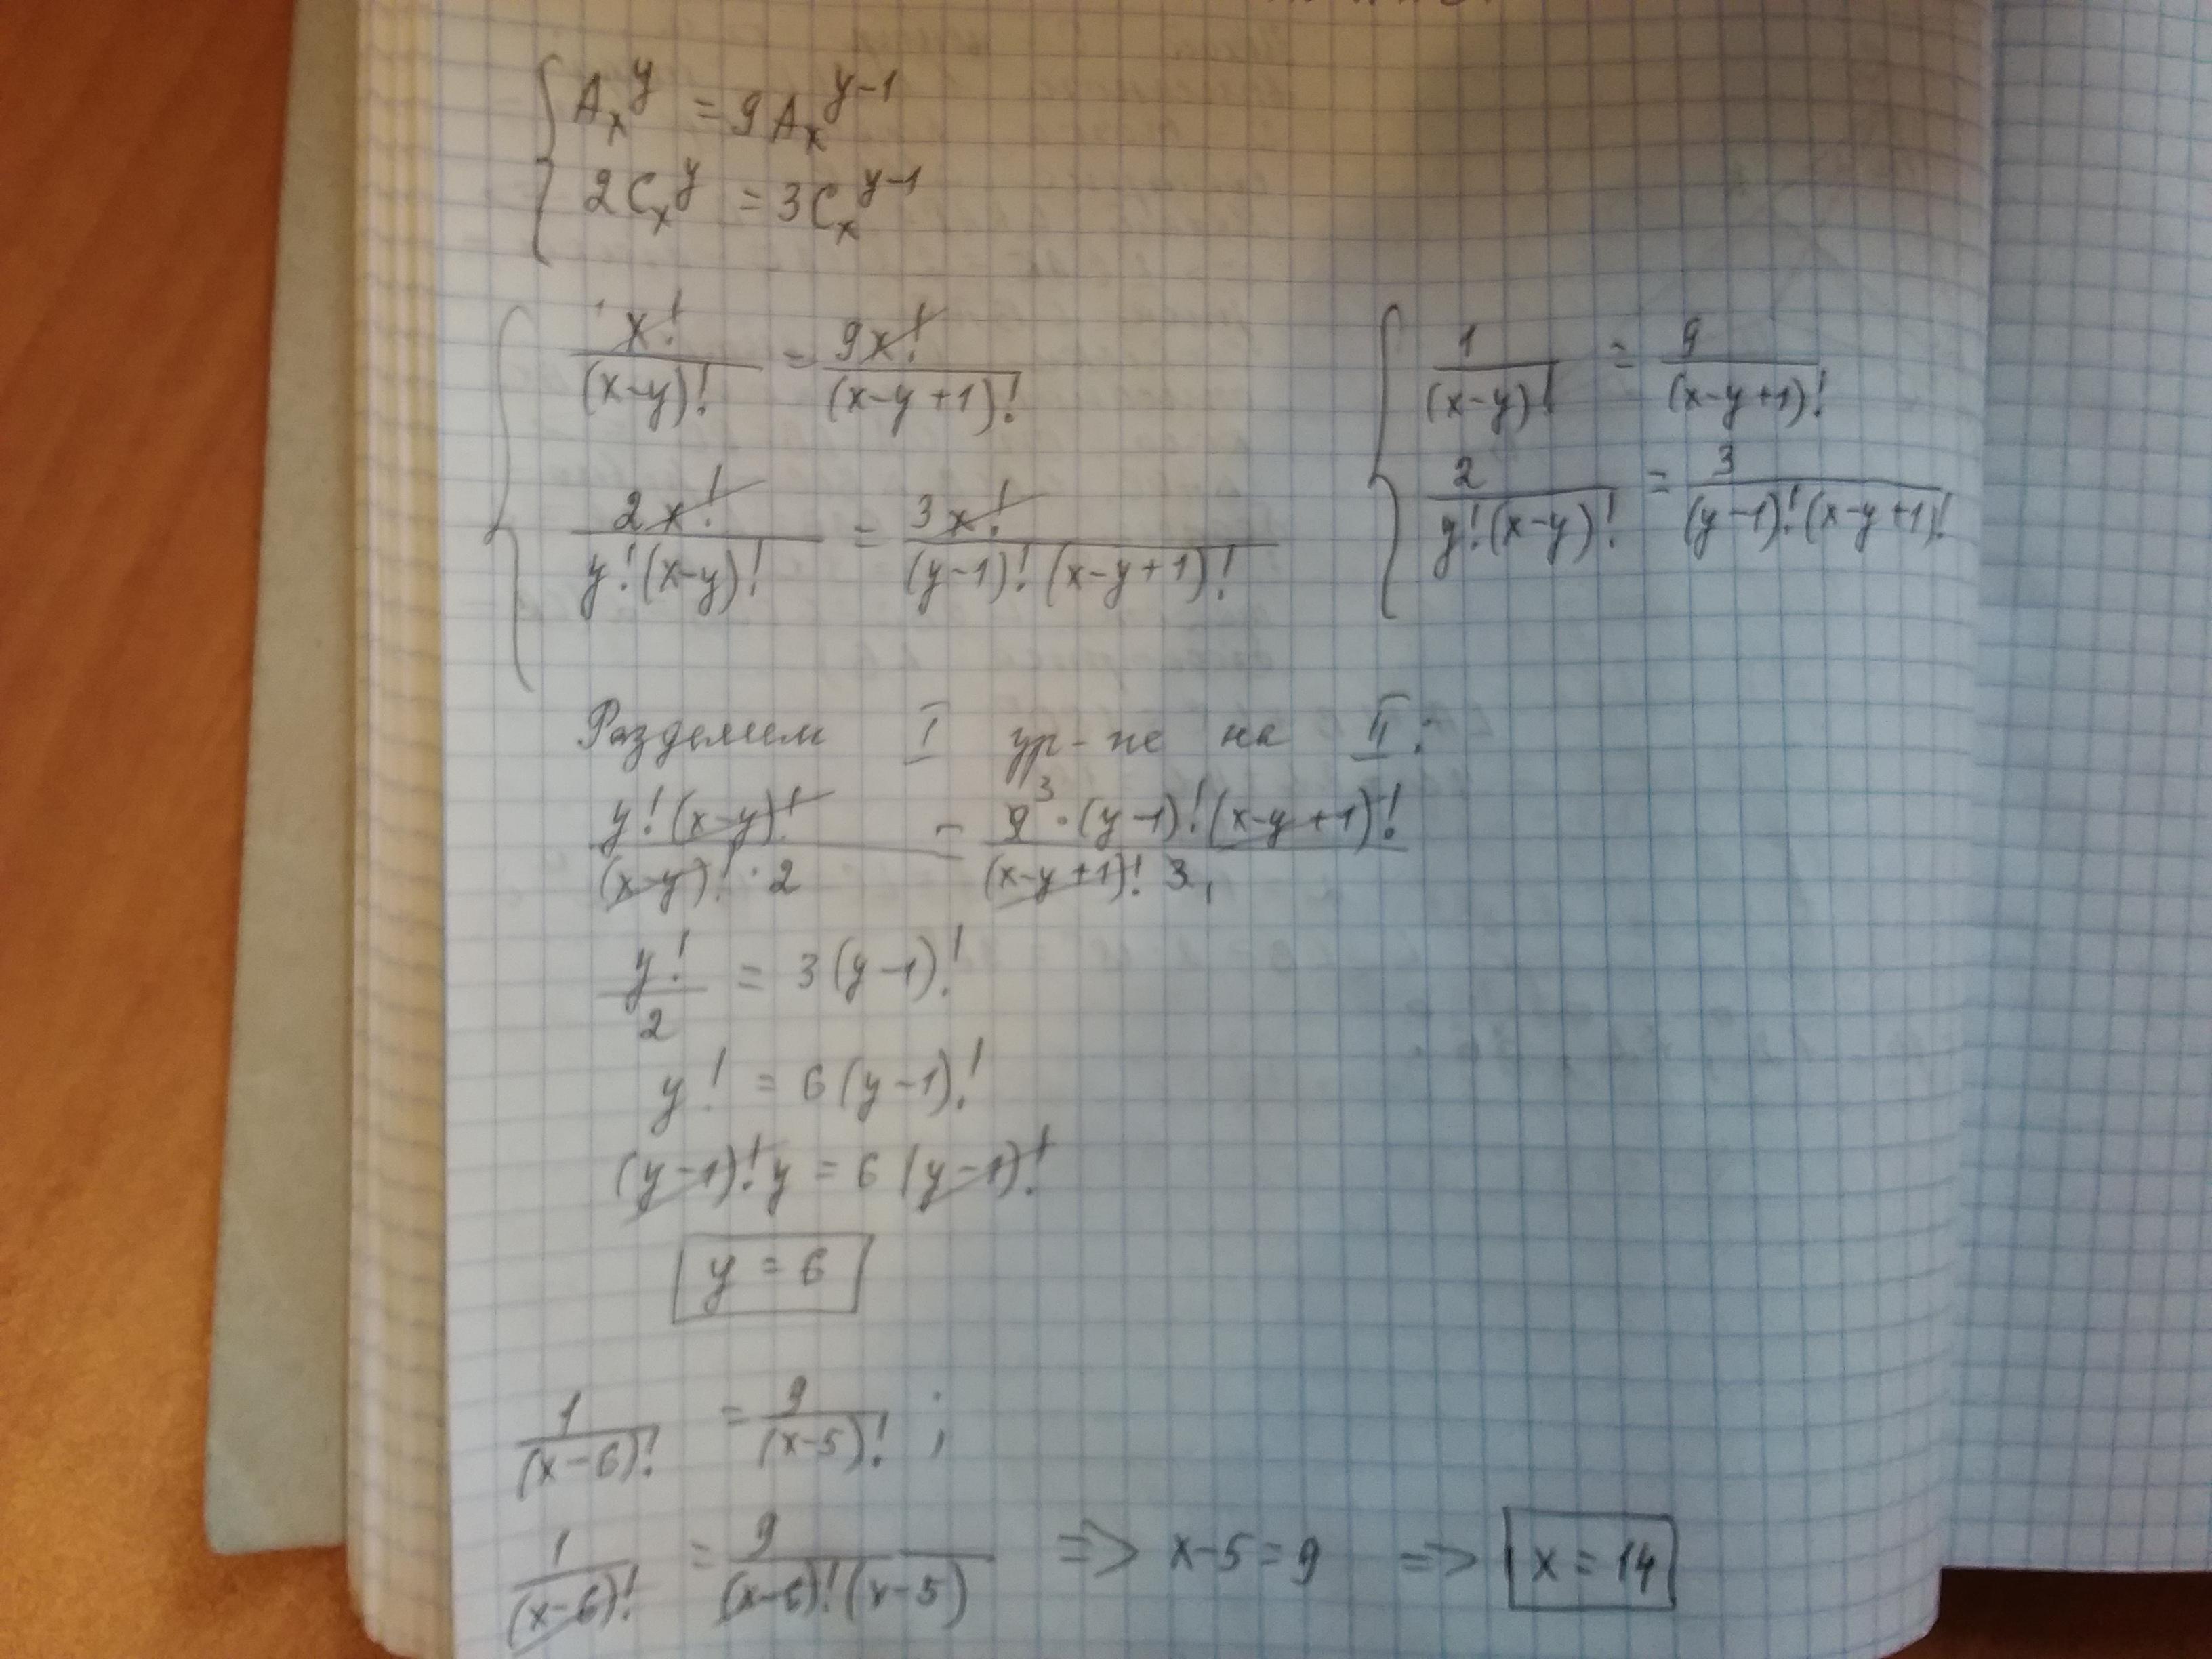 { Aₓ^y = 9Aₓ^(y-1)
2Cₓ^y = 3Cₓ^(y-1)
{ x!/(x-y)! = 9x!/(x-y+1)!
2x!/(y!(x-y)!) = 3x!/((y-1)!(x-y+1)!)
{ 1/(x-y)! = 9/(x-y+1)!
2/(y!(x-y)!) = 3/((y-1)!(x-y+1)!
Разделим I ур-не на II:
y!(x-y)!/((x-y)!·2) = 9³·(y-1)!(x-y+1)!/((x-y+1)! 3₁)
y!/2 = 3(y-1)!
y! = 6(y-1)!
(y-1)!y = 6(y-1)!
y = 6
1/(x-6)! = 9/(x-5)! ;
1/(x-6)! = 9/((x-6)!(x-5)) => x-5=9 => x = 14